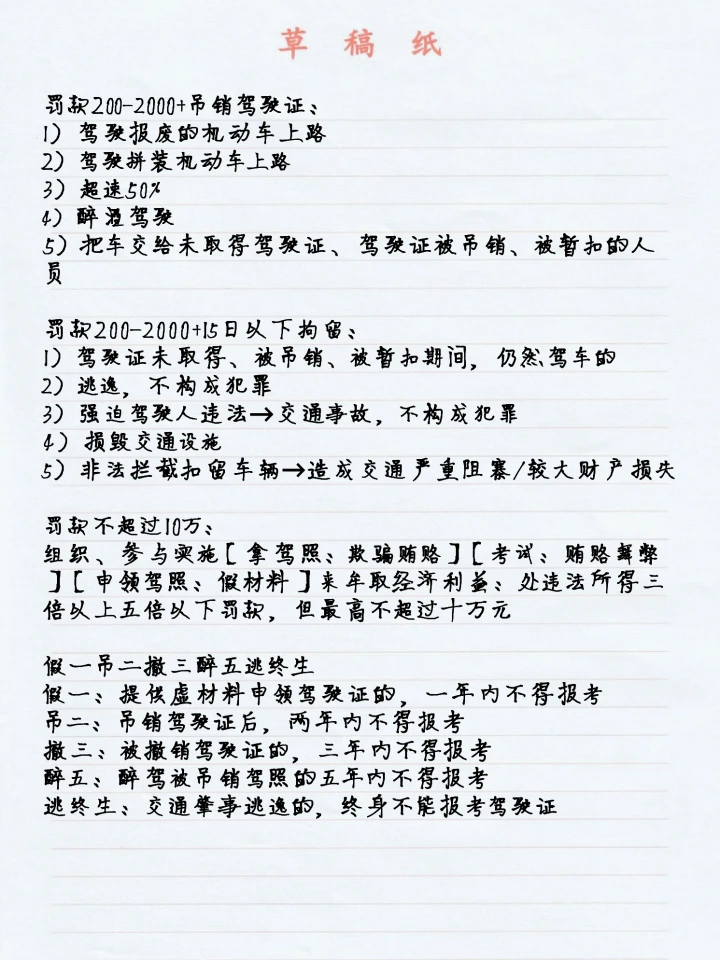 草稿纸
罚款200-2000+吊销驾驶证：
1）驾驶报废的机动车上路
2）驾驶拼装机动车上路
3）超速50%
4）醉酒驾驶
5）把车交给未取得驾驶证、驾驶证被吊销、被暂扣的人
员
罚款200-2000+15日以下拘留：
1）驾驶证未取得、被吊销、被暂扣期间，仍然驾车的
2）逃逸，不构成犯罪
3）强迫驾驶人违法→交通事故，不构成犯罪
4）损毁交通设施
5）非法拦截扣留车辆→造成交通严重阻塞/较大财产损失
罚款不超过10万：
组织、参与实施[拿驾照：欺骗贿赂][考试：贿赂舞弊
][申领驾照：假材料]来牟取经济利益：处违法所得三
倍以上五倍以下罚款，但最高不超过十万元
假一吊二撤三醉五逃终生
假一：提供虚材料申领驾驶证的，一年内不得报考
吊二：吊销驾驶证后，两年内不得报考
撤三：被撤销驾驶证的，三年内不得报考
醉五：醉驾被吊销驾照的五年内不得报考
逃终生：交通肇事逃逸的，终身不能报考驾驶证